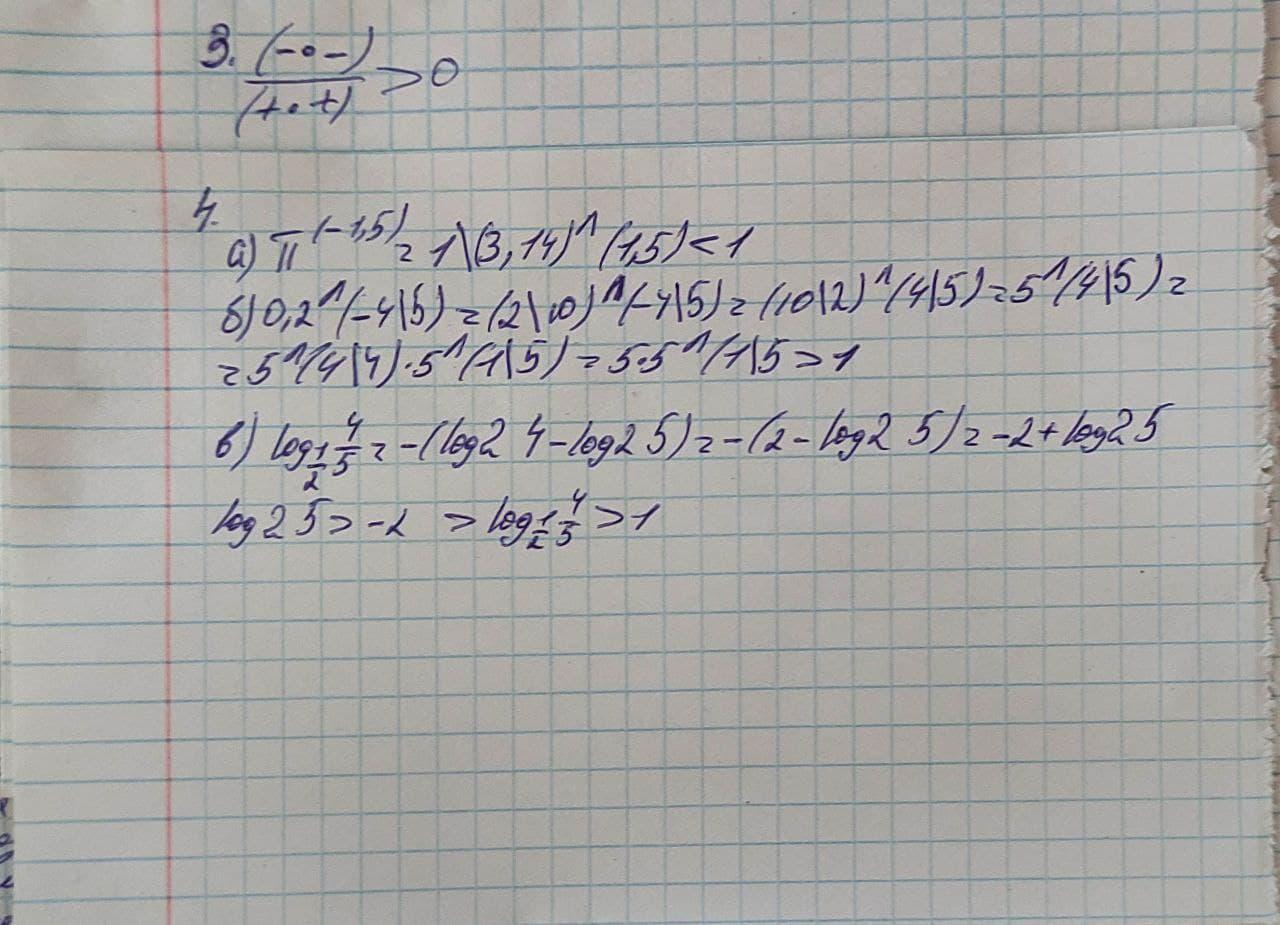 3. (-∘-)/(+∘+) > 0
4.
а) π^(-1,5) = 1\(3,14)^(1,5) < 1
б) 0,2^(-4\5) = (2\10)^(-4\5) = (10\2)^(4\5) = 5^(4\5) =
= 5^(4\4)·5^(1\5) = 5·5^(1\5 > 1
в) log_{1/2} 4/5 = -(log2 4 - log2 5) = -(2 - log2 5) = -2 + log2 5
log2 5 > -2 > log_{1/2} 4/5 > 1